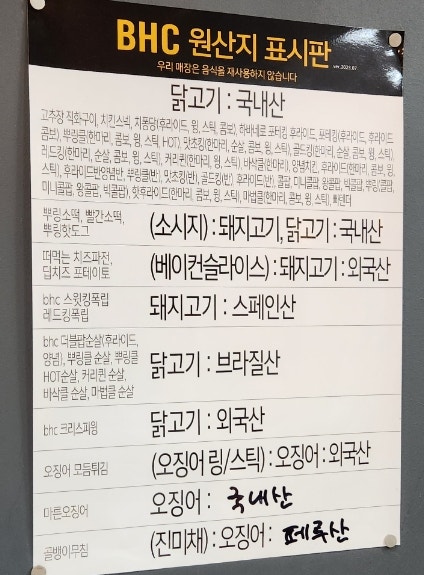 BHC 원산지 표시판
우리 매장은 음식을 재사용하지 않습니다
ver. 2023.07
닭고기 : 국내산
고추장 직화구이, 치킨스넥, 치퐁당(후라이드, 윙, 스틱, 콤보), 하바네로 포테킹 후라이드, 포테킹(후라이드, 후라이드
콤보), 뿌링클(한마리, 콤보, 윙, 스틱 HOT), 맛초킹(한마리, 순살, 콤보, 윙, 스틱), 골드킹(한마리, 순살, 콤보, 윙, 스틱),
레드킹(한마리, 순살, 콤보, 윙, 스틱), 커리퀸(한마리, 윙, 스틱), 바삭클(한마리, 순살, 윙, 스틱), 양념치킨, 후라이드(한마리, 콤보, 윙,
스틱), 후라이드반양념반, 뿌링클(반), 맛초킹(반), 골드킹(반), 후라이드(반), 콜팝, 미니콜팝, 왕콜팝, 빅콜팝, 뿌링(콜팝,
미니콜팝, 왕콜팝, 빅콜팝), 핫후라이드(한마리, 콤보, 윙, 스틱), 마법클(한마리, 콤보, 윙, 스틱), 빠텐더
뿌링소떡, 빨간소떡,
뿌링핫도그
(소시지) : 돼지고기, 닭고기 : 국내산
떠먹는 치즈파전,
딥치즈 포테이토
(베이컨슬라이스) : 돼지고기 : 외국산
bhc 스윗킹폭립
레드킹폭립
돼지고기 : 스페인산
bhc 더블팝순살(후라이드,
양념), 뿌링클 순살, 뿌링클
HOT순살, 커리퀸 순살,
바삭클 순살, 마법클 순살
닭고기 : 브라질산
bhc 크리스피윙
닭고기 : 외국산
오징어 모듬튀김
(오징어 링/스틱) : 오징어 : 외국산
마른오징어
오징어 : 국내산
골뱅이무침
(진미채) : 오징어 : 페루산